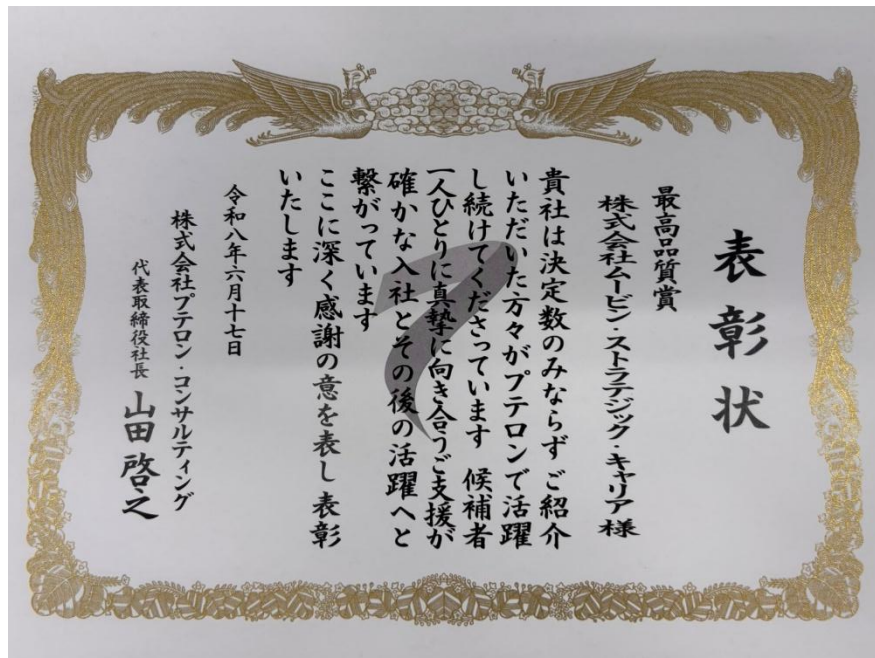 表彰状
最高品質賞
株式会社ムービン・ストラテジック・キャリア 様
貴社は決定数のみならず ご紹介
いただいた方々がプテロンで活躍
し続けてくださっています 候補者
一人ひとりに真摯に向き合うご支援が
確かな入社とその後の活躍へと
繋がっています
ここに深く感謝の意を表し 表彰
いたします
令和八年六月十七日
株式会社プテロン・コンサルティング
代表取締役社長 山田 啓之